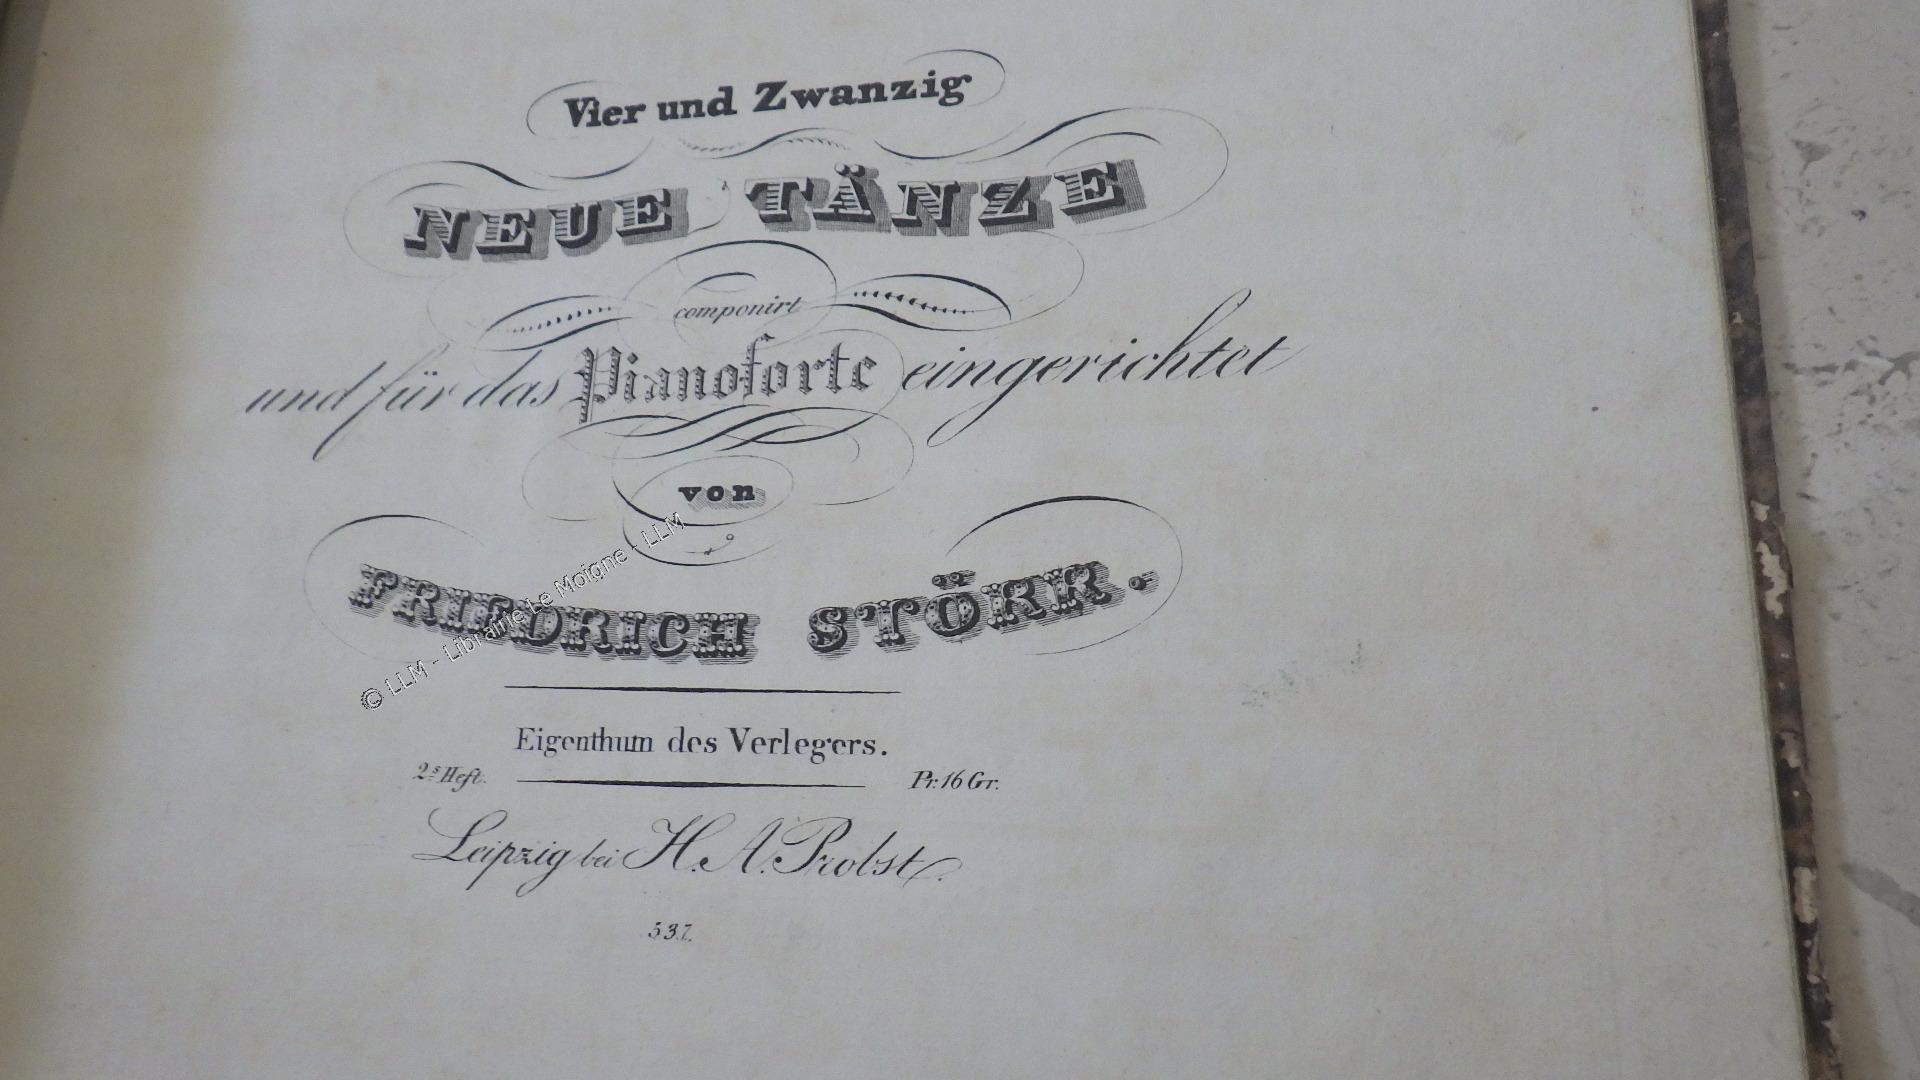 Vier und Zwanzig
NEUE TÄNZE
componirt
und für das Pianoforte eingerichtet
von
FRIEDRICH STÖRR.
Eigenthum des Verlegers.
2s Heft. Pr: 16 Gr.
Leipzig bei H. A. Probst.
537.
© LLM - Librairie Le Moigne - LLM